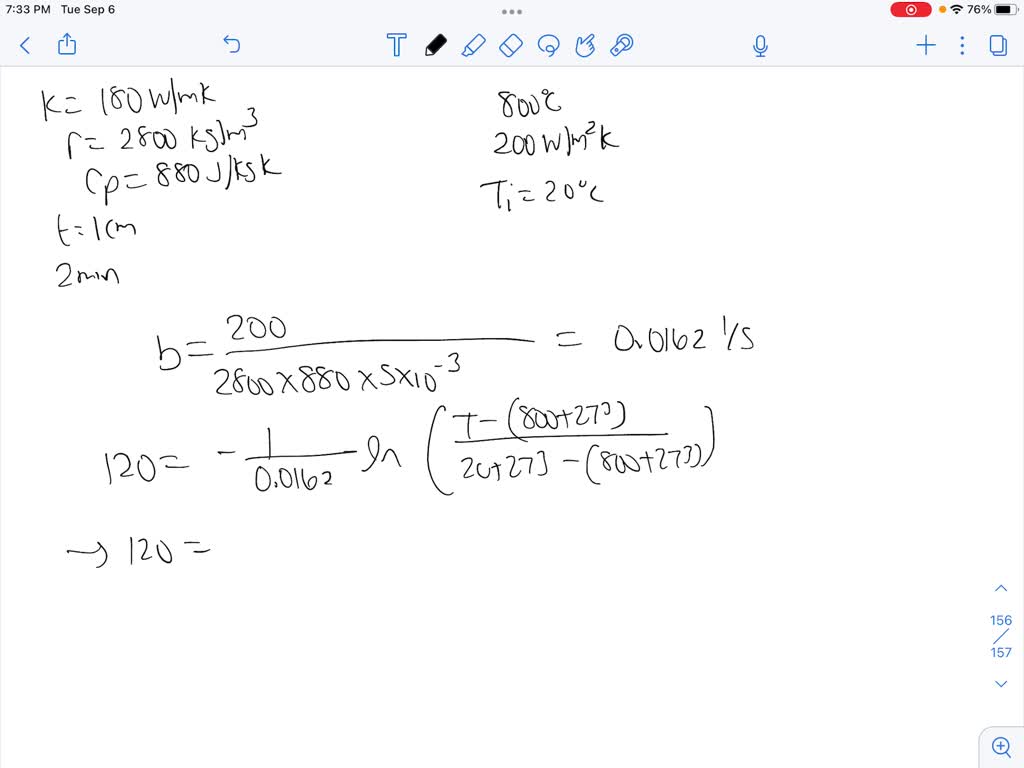 7:33 PM Tue Sep 6
76%
K = 180 W/mk
r = 2800 kg/m³
Cp = 880 J/kgk
t = 1 cm
2 min
800°C
200 W/m²K
Ti = 20°C
b = 200 / 2800 × 880 × 5×10⁻³ = 0.0162 1/s
120 = - 1/0.0162 ln ( T - (800+273) / 20+273 - (800+273) )
→ 120 =
156
/
157